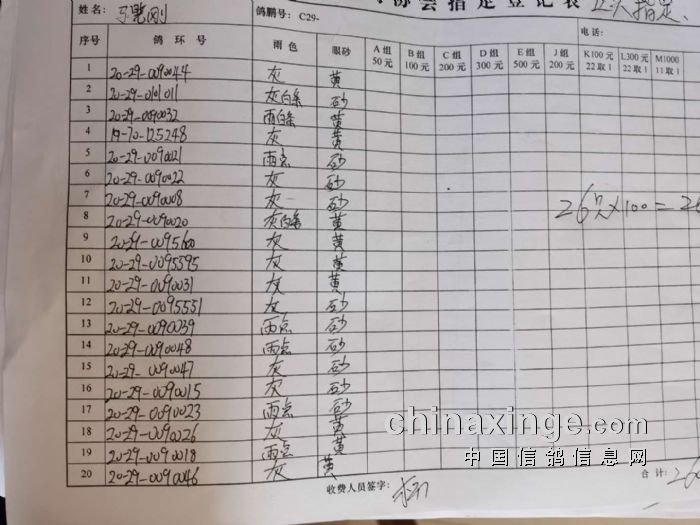 协会指定登记表
姓名: 鸽棚号: C29- 电话:
序号 鸽环号 雨色 眼砂 A组 50元 B组 100元 C组 200元 D组 300元 E组 500元 J组 200元 K100元 22取1 L300元 22取1 M1000 11取1
1 20-29-0090044 灰 黄
2 20-29-0101011 灰白条 砂
3 20-29-0090032 雨白条 黄
4 19-70-125248 灰 黄
5 20-29-0090021 雨点 砂
6 20-29-0090022 灰 砂
7 20-29-0090008 灰 砂
8 20-29-0090020 灰白条 黄
9 20-29-0095600 灰 黄
10 20-29-0095595 灰 黄
11 20-29-0090031 灰 黄
12 20-29-0095551 灰 砂
13 20-29-0090039 雨点 砂
14 20-29-0090048 雨点 砂
15 20-29-0090047 灰 砂
16 20-29-0090015 灰 砂
17 20-29-0090023 雨点 砂
18 20-29-0090026 灰 黄
19 20-29-0090018 雨点 黄
20 20-29-0090046 灰 黄
×100=
收费人员签字: 合计:
chinaxinge.com
中国信鸽信息网